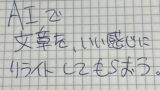 AIで
文章を、いい感じに
リライトしてもらおう。